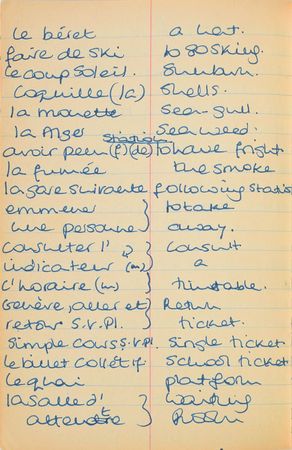 le béret a hat.
faire de ski to go skiing.
le coup soleil. Sunburn.
Coquille (la) Shells.
la mouette Sea-gull.
la Alger Sea weed.
station
avoir peur (f) (de) to have fright
la fumée the smoke
la gare suivante following station
emmener } to take
une personne } away.
consulter l' } consult
indicateur (m) } a
l'horaire (m) } timetable.
Genève, aller et } Return
retour S.V.Pl. } ticket.
Simple cours S.V.Pl. Single ticket
le billet collétif. School ticket
le quai platform
la salle d' } waiting
attendre } Room